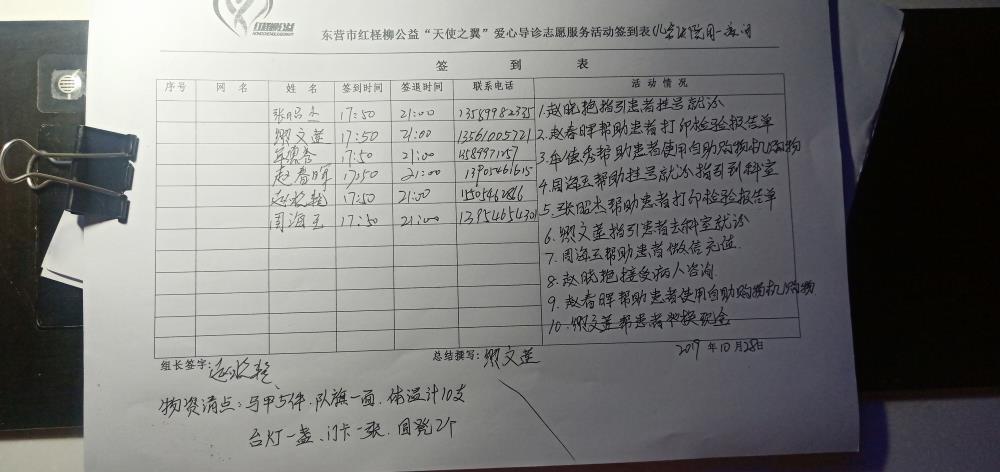 红柽柳公益
东营市红柽柳公益“天使之翼”爱心导诊志愿服务活动签到表
签 到 表
序号 网 名 姓 名 签到时间 签退时间 联系电话 活 动 情 况
张昭杰 17:50 21:00 13589982335
殴文莲 17:50 21:00 13561005721
17:50 21:00
赵春晖 17:50 21:00 13905461615
17:50 21:00
周海玉 17:50 21:00 13954654301
1.赵晓艳指引患者挂号就诊
2.赵春晖帮助患者打印检验报告单
3.牟德秀帮助患者使用自助购物机购物
4.周海玉帮助挂号就诊指引到科室
5.张昭杰帮助患者打印检验报告单
6.殴文莲指引患者去科室就诊
7.周海玉帮助患者微信充值
8.赵晓艳接受病人咨询
9.赵春晖帮助患者使用自助购物机购物
10.殴文莲帮患者兑换现金
组长签字: 总结撰写:殴文莲 2019年10月28日
物资清点:马甲5件.队旗一面.体温计10支
台灯一盏、门卡一张.圆凳2个